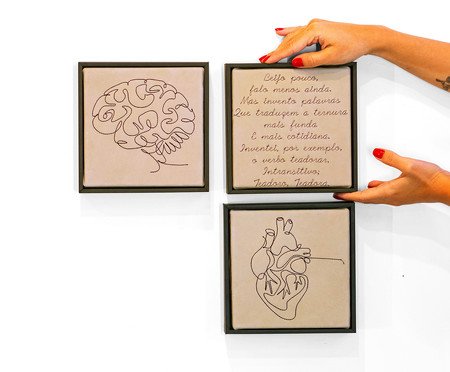 Beijo pouco,
falo menos ainda.
Mas invento palavras
Que traduzem a ternura
mais funda
E mais cotidiana.
Inventei, por exemplo,
o verbo teadorar.
Intransitivo;
Teadoro, Teodora.